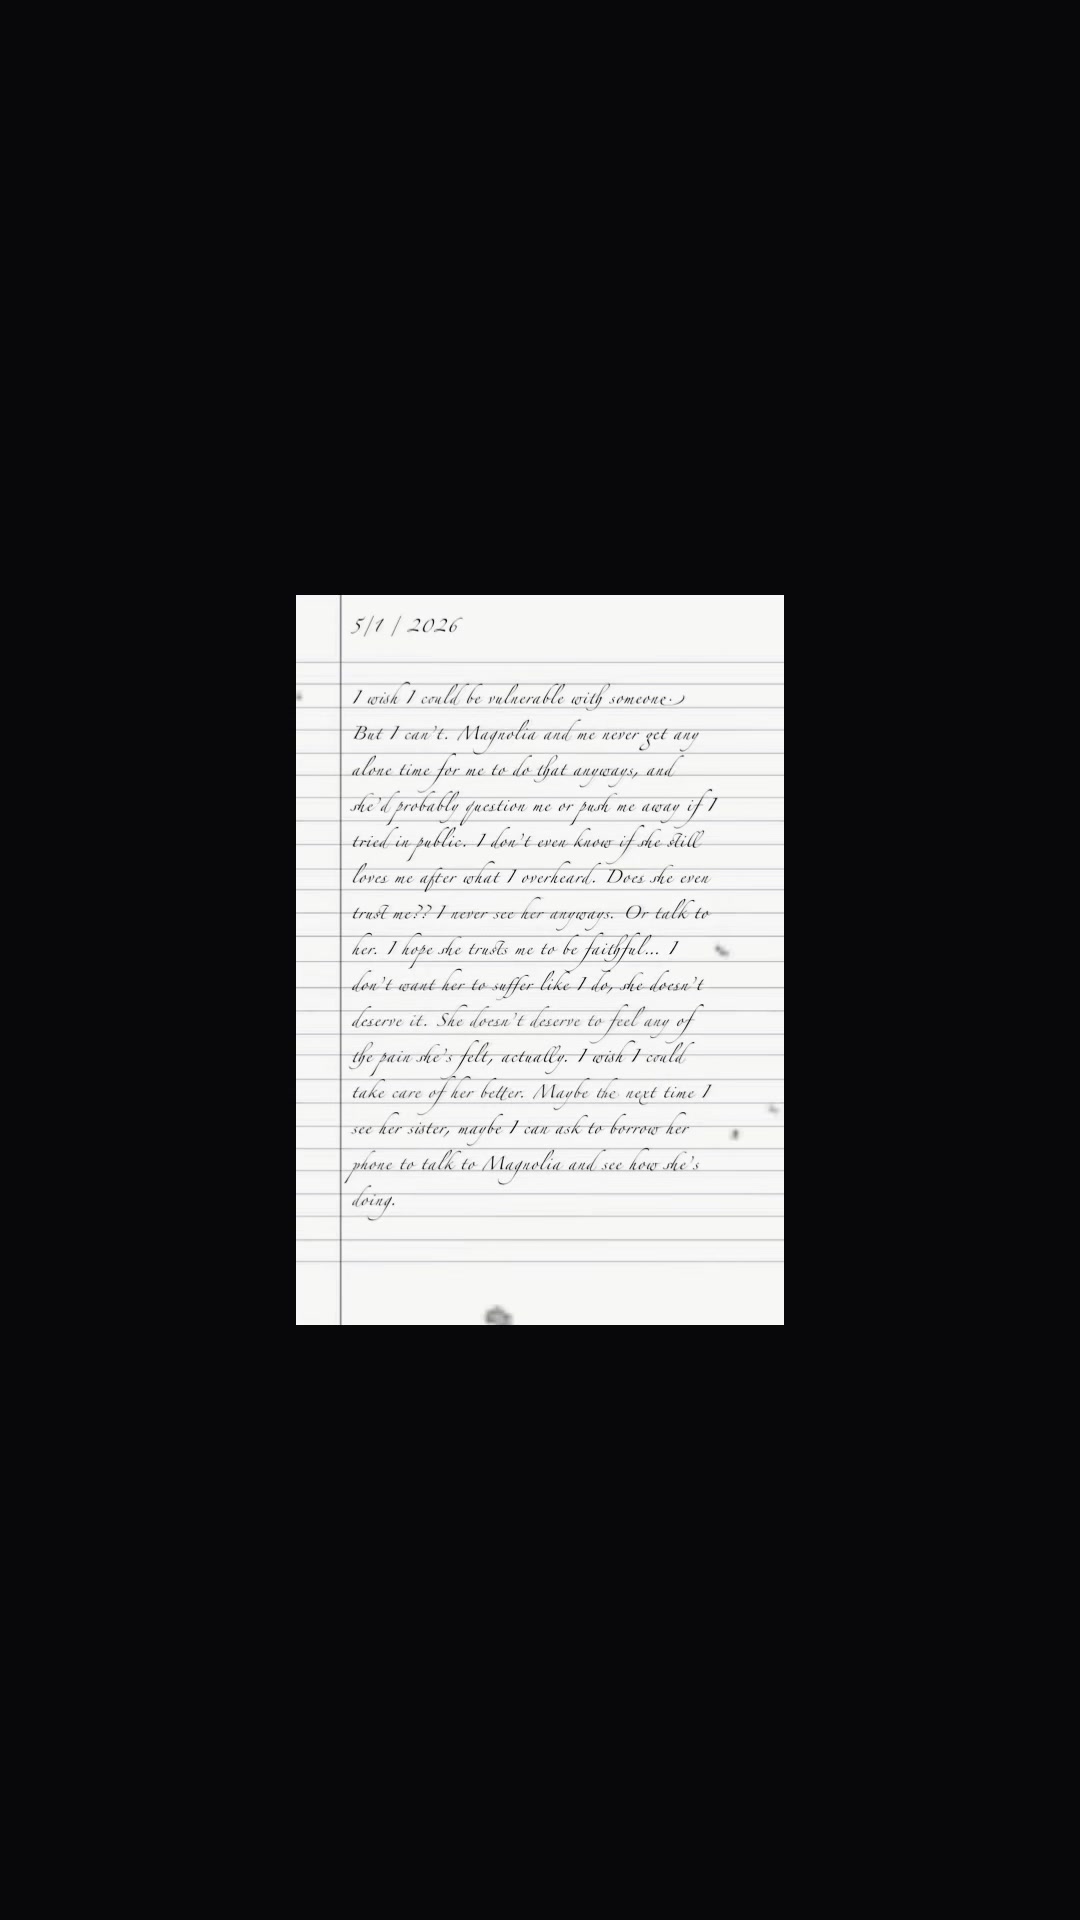 5/1 / 2026
I wish I could be vulnerable with someone.
But I can't. Magnolia and me never get any
alone time for me to do that anyways, and
she'd probably question me or push me away if I
tried in public. I don't even know if she still
loves me after what I overheard. Does she even
trust me?? I never see her anyways. Or talk to
her. I hope she trusts me to be faithful... I
don't want her to suffer like I do, she doesn't
deserve it. She doesn't deserve to feel any of
the pain she's felt, actually. I wish I could
take care of her better. Maybe the next time I
see her sister, maybe I can ask to borrow her
phone to talk to Magnolia and see how she's
doing.